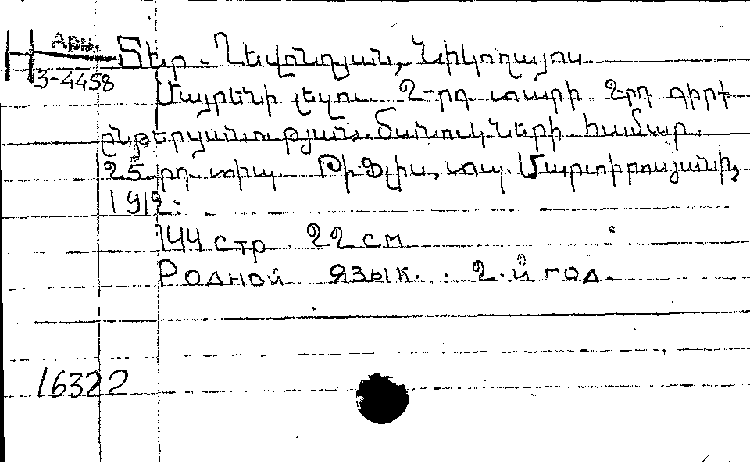 Н Арм.
3-4458
Տեր-Ղևոնդյան, Նիկողայոս
Մայրենի լեզու 2-րդ տարի 2րդ գիրք
ընթերցանության. մանուկների համար.
25 րդ տիպ. Թիֆլիս, տպ. Մարտիրոսյանի,
1912.
144 стр. 22 см
Родной язык. . 2-й год.
16322